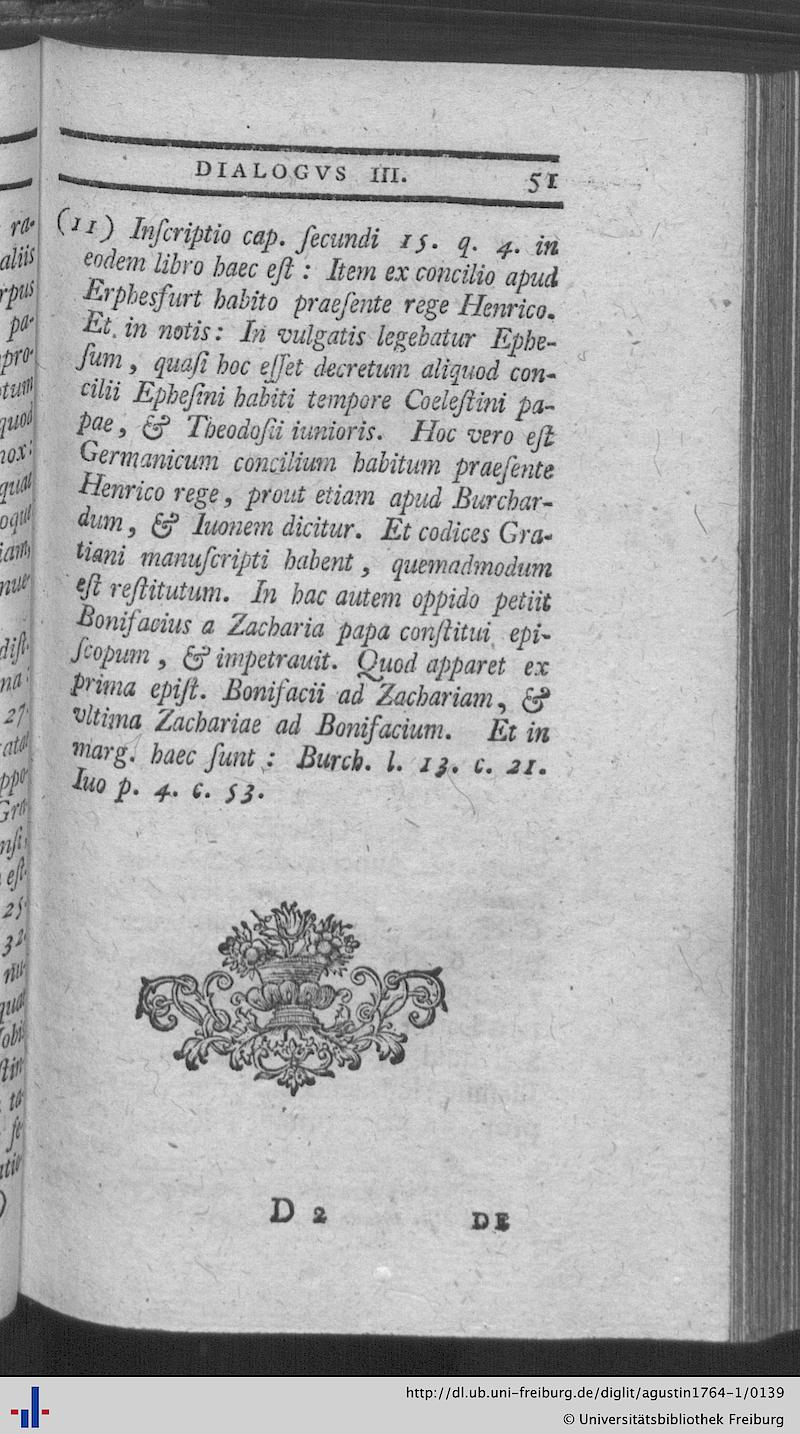 DIALOGVS III. 51
(11) Inſcriptio cap. ſecundi 15. q. 4. in
eodem libro haec eſt : Item ex concilio apud
Erphesfurt habito praeſente rege Henrico.
Et in notis: In vulgatis legebatur Ephe-
ſum, quaſi hoc eſſet decretum aliquod con-
cilii Epheſini habiti tempore Coeleſtini pa-
pae, & Theodoſii iunioris. Hoc vero eſt
Germanicum concilium habitum praeſente
Henrico rege, prout etiam apud Burchar-
dum, & Iuonem dicitur. Et codices Gra-
tiani manuſcripti habent, quemadmodum
eſt reſtitutum. In hac autem oppido petiit
Bonifacius a Zacharia papa conſtitui epi-
ſcopum, & impetrauit. Quod apparet ex
prima epiſt. Bonifacii ad Zachariam, &
vltima Zachariae ad Bonifacium. Et in
marg. haec ſunt : Burch. l. 13. c. 21.
Iuo p. 4. c. 53.
D 2 DE
ra-
aliis
rpus
pa-
pro-
tum
quod
nox:
quat
oqui
iam,
nue-
diſt.
na:
27.
ata
ppo-
Gra
nſi,
eſt.
25.
32.
nu-
qua
ſtin
ta-
ſe-
http://dl.ub.uni-freiburg.de/diglit/agustin1764-1/0139
© Universitätsbibliothek Freiburg